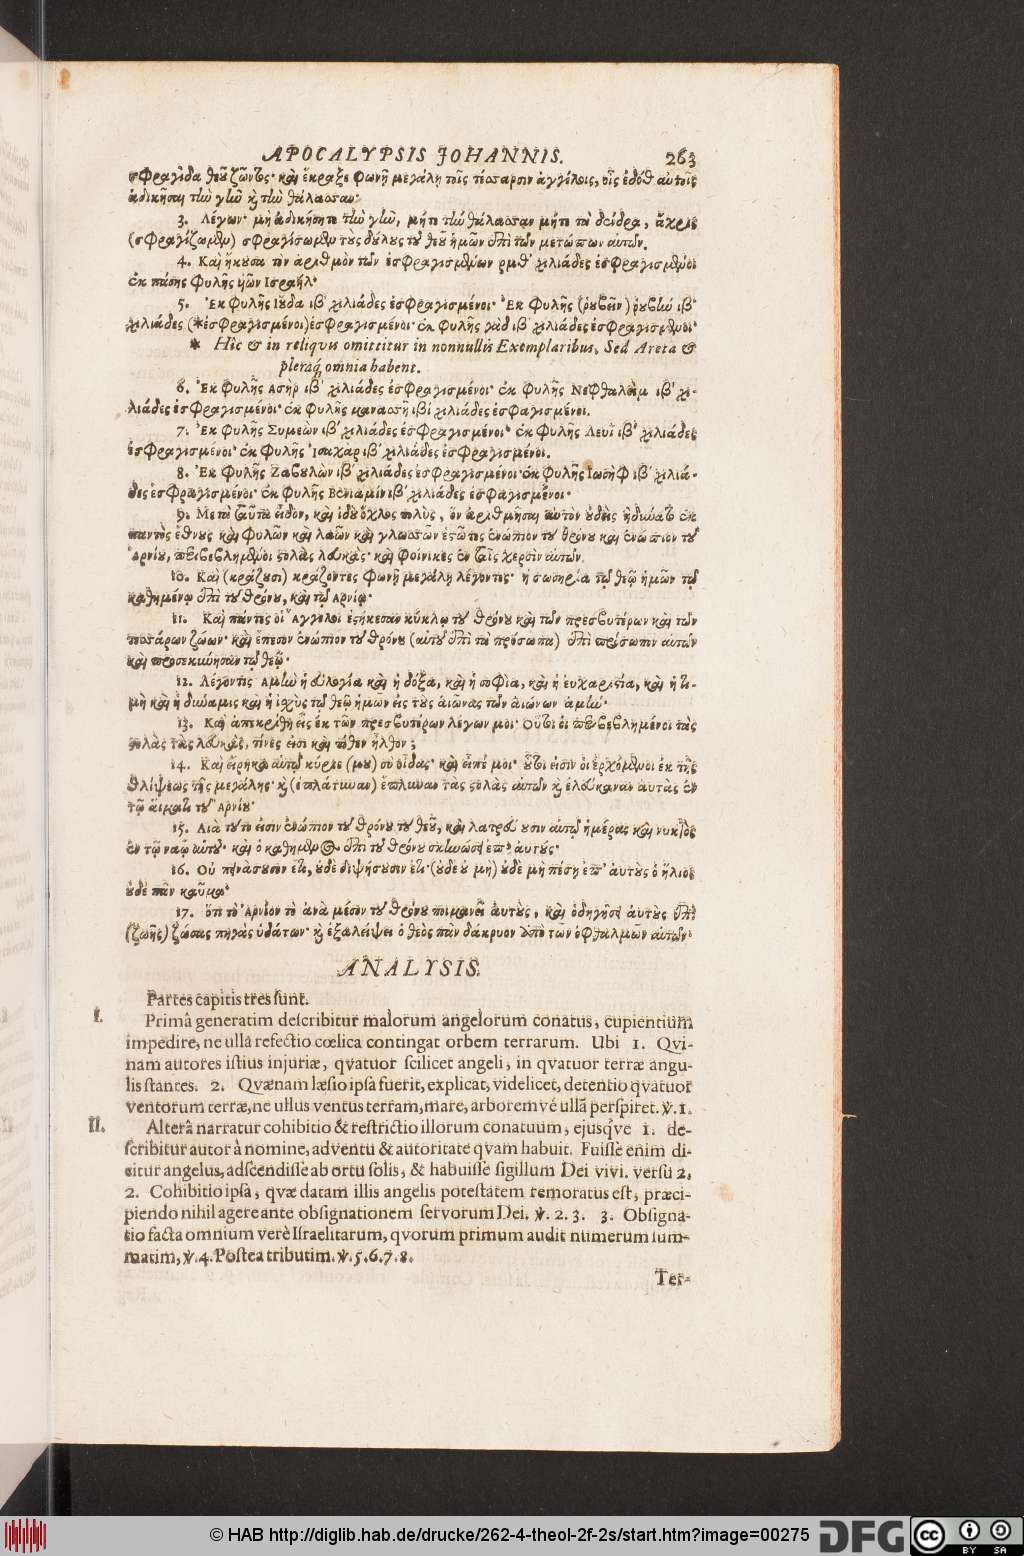 APOCALYPSIS JOHANNIS. 263
σφραγίδα θεοῦ ζῶντος· καὶ ἔκραξε φωνῇ μεγάλῃ τοῖς τέσσαρσιν ἀγγέλοις, οἷς ἐδόθη αὐτοῖς
ἀδικῆσαι τὴν γῆν καὶ τὴν θάλασσαν·
3. Λέγων· μὴ ἀδικήσητε τὴν γῆν, μήτε τὴν θάλασσαν μήτε τὰ δένδρα, ἄχρις
(σφραγίζωμεν) σφραγίσωμεν τοὺς δούλους τοῦ θεοῦ ἡμῶν ἐπὶ τῶν μετώπων αὐτῶν.
4. Καὶ ἤκουσα τὸν ἀριθμὸν τῶν ἐσφραγισμένων ρμδ′ χιλιάδες ἐσφραγισμένοι
ἐκ πάσης φυλῆς υἱῶν Ισραήλ·
5. Ἐκ φυλῆς Ιούδα ιβ′ χιλιάδες ἐσφραγισμένοι· Ἐκ φυλῆς (ῥουβεὶν) ῥουβὴν ιβ′
χιλιάδες (*ἐσφραγισμένοι) ἐσφραγισμένοι· ἐκ φυλῆς γὰδ ιβ′ χιλιάδες ἐσφραγισμένοι·
* Hîc & in reliquis omittitur in nonnullis Exemplaribus, Sed Areta &
pleraq́, omnia habent.
6. Ἐκ φυλῆς Ασὴρ ιβ′ χιλιάδες ἐσφραγισμένοι· ἐκ φυλῆς Νεφθαλεὶμ ιβ′ χι-
λιάδες ἐσφραγισμένοι· ἐκ φυλῆς μανασσῆ ιβ′ χιλιάδες ἐσφαγισμένοι.
7. Ἐκ φυλῆς Συμεὼν ιβ′ χιλιάδες ἐσφραγισμένοι· ἐκ φυλῆς Λευῒ ιβ′ χιλιάδες
ἐσφραγισμένοι· ἐκ φυλῆς Ἰσαχαρ ιβ′ χιλιάδες ἐσφραγισμένοι.
8. Ἐκ φυλῆς Ζαβουλὼν ιβ′ χιλιάδες ἐσφραγισμένοι· ἐκ φυλῆς Ιωσὴφ ιβ′ χιλιά-
δες ἐσφραγισμένοι· ἐκ φυλῆς Βενιαμὶν ιβ′ χιλιάδες ἐσφαγισμένοι·
9. Μετὰ ταῦτα εἶδον, καὶ ἰδοὺ ὄχλος πολὺς, ὃν ἀριθμῆσαι αὐτὸν οὐδεὶς ἠδύνατο ἐκ
παντὸς ἔθνους καὶ φυλῶν καὶ λαῶν καὶ γλωσσῶν ἑστῶτες ἐνώπιον τοῦ θρόνου καὶ ἐνώπιον τοῦ
Ἀρνίου, περιβεβλημένοι στολὰς λευκάς· καὶ φοίνικες ἐν ταῖς χερσὶν αὐτῶν.
10. Καὶ (κράζουσι) κράζοντες φωνῇ μεγάλῃ λέγοντες· ἡ σωτηρία τῷ θεῷ ἡμῶν τῷ
καθημένῳ ἐπὶ τοῦ θρόνου, καὶ τῷ Αρνίῳ·
11. Καὶ πάντες οἱ Ἄγγελοι ἑστήκεσαν κύκλῳ τοῦ θρόνου καὶ τῶν πρεσβυτέρων καὶ τῶν
τεσσάρων ζώων· καὶ ἔπεσον ἐνώπιον τοῦ θρόνου (αὐτοῦ ἐπὶ τὰ πρόσωπα) ἐπὶ πρόσωπον αὐτῶν
καὶ προσεκύνησαν τῷ θεῷ·
12. Λέγοντες Αμὴν ἡ εὐλογία καὶ ἡ δόξα, καὶ ἡ σοφία, καὶ ἡ εὐχαριστία, καὶ ἡ τι-
μὴ καὶ ἡ δύναμις καὶ ἡ ἰσχὺς τῷ θεῷ ἡμῶν εἰς τοὺς αἰῶνας τῶν αἰώνων ἀμήν·
13. Καὶ ἀπεκρίθη εἷς ἐκ τῶν πρεσβυτέρων λέγων μοι· Οὗτοι οἱ περιβεβλημένοι τὰς
στολὰς τὰς λευκὰς, τίνες εἰσὶ καὶ πόθεν ἦλθον;
14. Καὶ εἴρηκα αὐτῷ κύριε (μου) σὺ οἶδας· καὶ εἶπέ μοι· οὗτοι εἰσὶν οἱ ἐρχόμενοι ἐκ τῆς
θλίψεως τῆς μεγάλης· καὶ (ἐπλάτυναν) ἔπλυναν τὰς στολὰς αὐτῶν καὶ ἐλεύκαναν αὐτὰς ἐν
τῷ αἵματι τοῦ Αρνίου·
15. Διὰ τοῦτο εἰσιν ἐνώπιον τοῦ θρόνου τοῦ θεοῦ, καὶ λατρεύουσιν αὐτῷ ἡμέρας καὶ νυκτὸς
ἐν τῷ ναῷ αὐτοῦ· καὶ ὁ καθήμενος ἐπὶ τοῦ θρόνου σκηνώσει ἐπ' αὐτούς·
16. Οὐ πεινάσουσιν ἔτι, οὐδὲ διψήσουσιν ἔτι· (οὐδὲ οὐ μὴ) οὐδὲ μὴ πέσῃ ἐπ' αὐτοὺς ὁ ἥλιος
οὐδὲ πᾶν καῦμα·
17. ὅτι τὸ Ἀρνίον τὸ ἀνὰ μέσον τοῦ θρόνου ποιμανεῖ αὐτοὺς, καὶ ὁδηγήσει αὐτοὺς ἐπὶ
(ζωῆς) ζώσας πηγὰς ὑδάτων· καὶ ἐξαλείψει ὁ θεὸς πᾶν δάκρυον ἀπὸ τῶν ὀφθαλμῶν αὐτῶν·
ANALYSIS.
Partes capitis tres sunt.
I. Primâ generatim describitur malorum angelorum conatus, cupientium
impedire, ne ulla refectio cœlica contingat orbem terrarum. Ubi 1. Qvi-
nam autores istius injuriæ, qvatuor scilicet angeli, in qvatuor terræ angu-
lis stantes. 2. Qvænam læsio ipsa fuerit, explicat, videlicet, detentio qvatuor
ventorum terræ, ne ullus ventus terram, mare, arborem vé ullâ perspiret. ℣. 1.
II. Alterâ narratur cohibitio & restrictio illorum conatuum, ejusq́ve 1. de-
scribitur autor à nomine, adventu & autoritate qvam habuit. Fuisse enim di-
citur angelus, adscendisse ab ortu solis, & habuisse sigillum Dei vivi. versu 2.
2. Cohibitio ipsa, qvæ datam illis angelis potestatem remoratus est, præci-
piendo nihil agere ante obsignationem servorum Dei. ℣. 2. 3. 3. Obsigna-
tio facta omnium verè Israelitarum, qvorum primum audit numerum sum-
matim, ℣. 4. Postea tributim. ℣. 5. 6. 7. 8.
Ter-
© HAB http://diglib.hab.de/drucke/262-4-theol-2f-2s/start.htm?image=00275
DFG
cc
BY SA